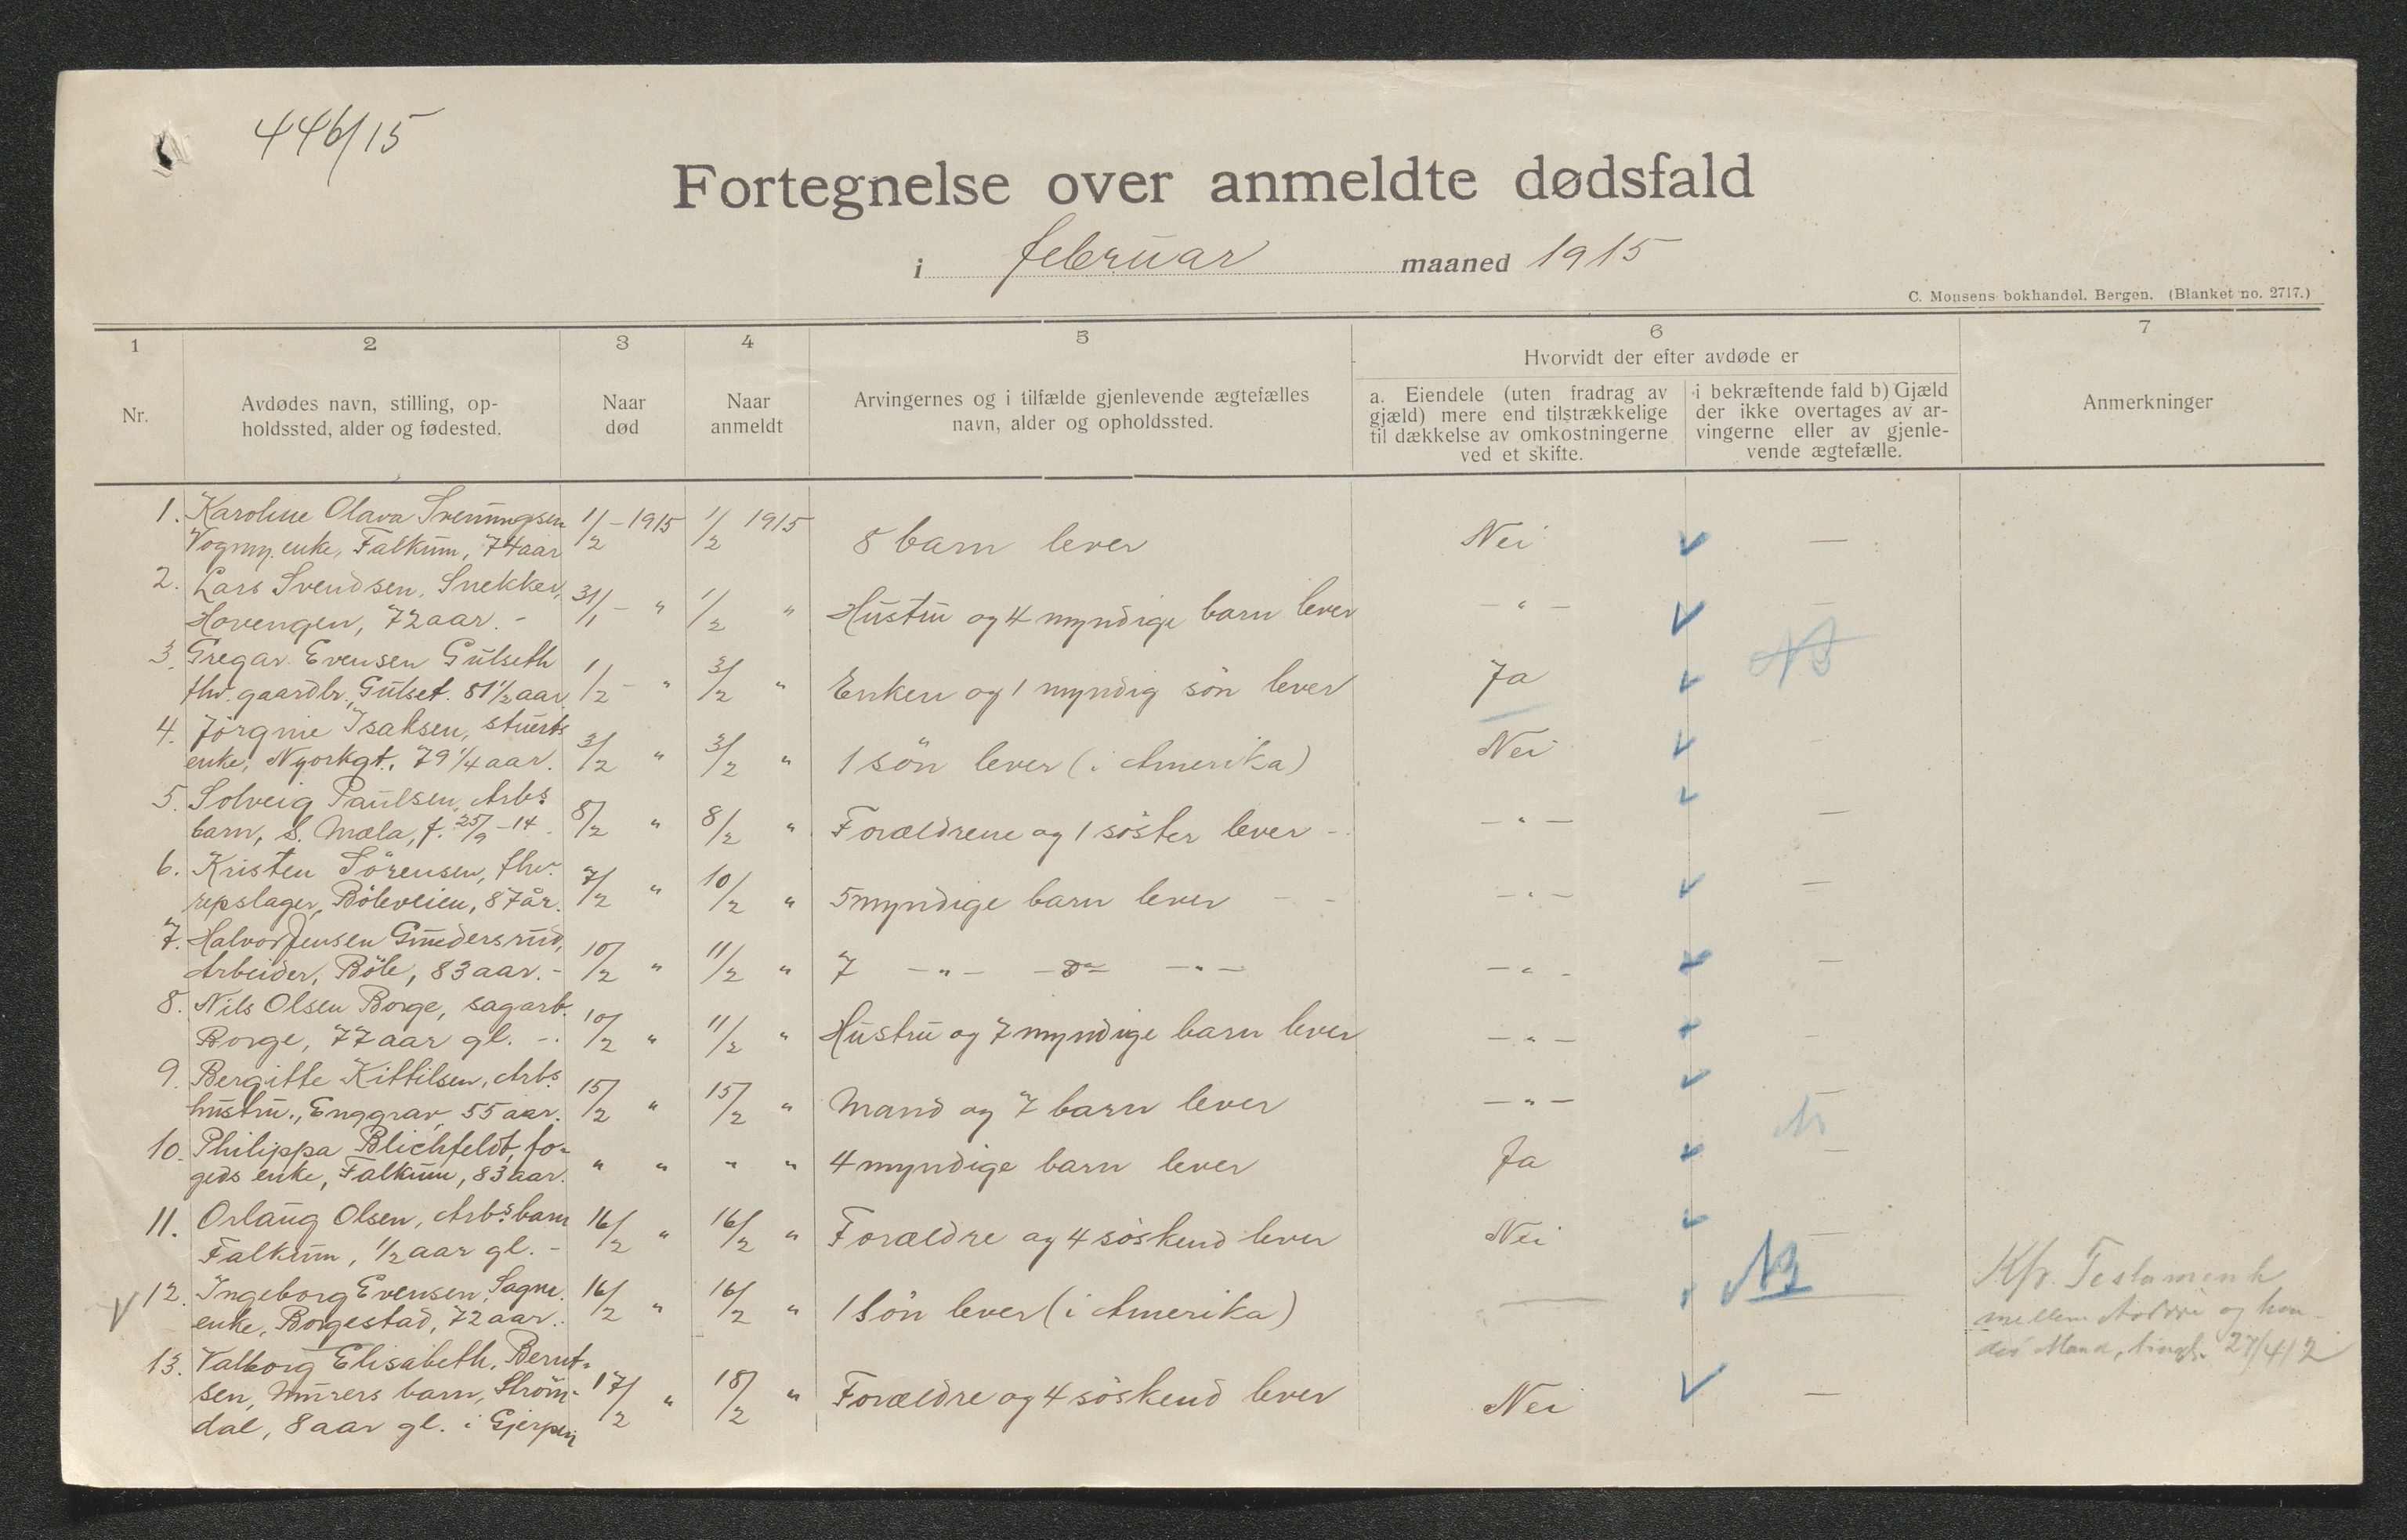 446/15
Fortegnelse over anmeldte dødsfald
i februar maaned 1915
C. Monsens bokhandel. Bergen. (Blanket no. 2717.)
1 2 3 4 5 6 7
Hvorvidt der efter avdøde er
Nr.
Avdødes navn, stilling, op-
holdssted, alder og fødested.
Naar
død
Naar
anmeldt
Arvingernes og i tilfælde gjenlevende ægtefælles
navn, alder og opholdssted.
a. Eiendele (uten fradrag av
gjæld) mere end tilstrækkelige
til dækkelse av omkostningerne
ved et skifte.
i bekræftende fald b) Gjæld
der ikke overtages av ar-
vingerne eller av gjenle-
vende ægtefælle.
Anmerkninger
1. Karoline Olava Svenningsen 1/2 - 1915 1/2 1915
Vogmn. enke, Falkum, 74 aar 8 barn lever Nei —
2. Lars Svendsen, Snekker, 31/1 - " 1/2 "
Hovengen, 72 aar. - Hustru og 4 myndige barn lever - " - —
3. Gregar Evensen Gulseth 1/2 - " 3/2 " NB
fhv. gaardbr., Gulset. 81 1/2 aar. Enken og 1 myndig søn lever Ja
4. Jörgine Isaksen, stuerts 3/2 " 3/2 "
enke, Nyorkgt., 79 1/4 aar. 1 søn lever (i Amerika) Nei —
5. Solveig Paulsen, Arbs.
barn, S. Mæla, f. 25/9 - 14. 8/2 " 8/2 " Forældrene og 1 söster lever - - " - —
6. Kristen Sörensen, fhv.
repslager, Böleveien, 87 år. 7/2 " 10/2 " 5 myndige barn lever - - - " - —
7. Halvor Jensen Gundersrud,
Arbeider, Böle, 83 aar. - 10/2 " 11/2 " 7 - " - - " - - " - - " - —
8. Nils Olsen Borge, sagarb.
Borge, 77 aar gl. - 10/2 " 11/2 " Hustru og 7 myndige barn lever - " - —
9. Bergitte Kittilsen, Arbs.
hustru., Enggrav, 55 aar. 15/2 " 15/2 " Mand og 7 barn lever - " - —
10. Philippa Blichfeldt, fo-
geds enke, Falkum, 83 aar. " " " " 4 myndige barn lever Ja —
11. Orlaug Olsen, Arbs. barn 16/2 " 16/2 "
Falkum, 1/2 aar gl. - Forældre og 4 söskend lever Nei —
12. Ingeborg Evensen, Sagm. 16/2 " 16/2 " NB Kfr. Testament
enke, Borgestad, 72 aar. 1 Søn lever (i Amerika) — mellem og hen-
des Mand, tingl. 27/4 12
13. Valborg Elisabeth Bernt-
sen, Murers barn, Ström- 17/2 " 18/2 " Forældre og 4 söskend lever Nei —
dal, 8 aar gl. i Gjerpen